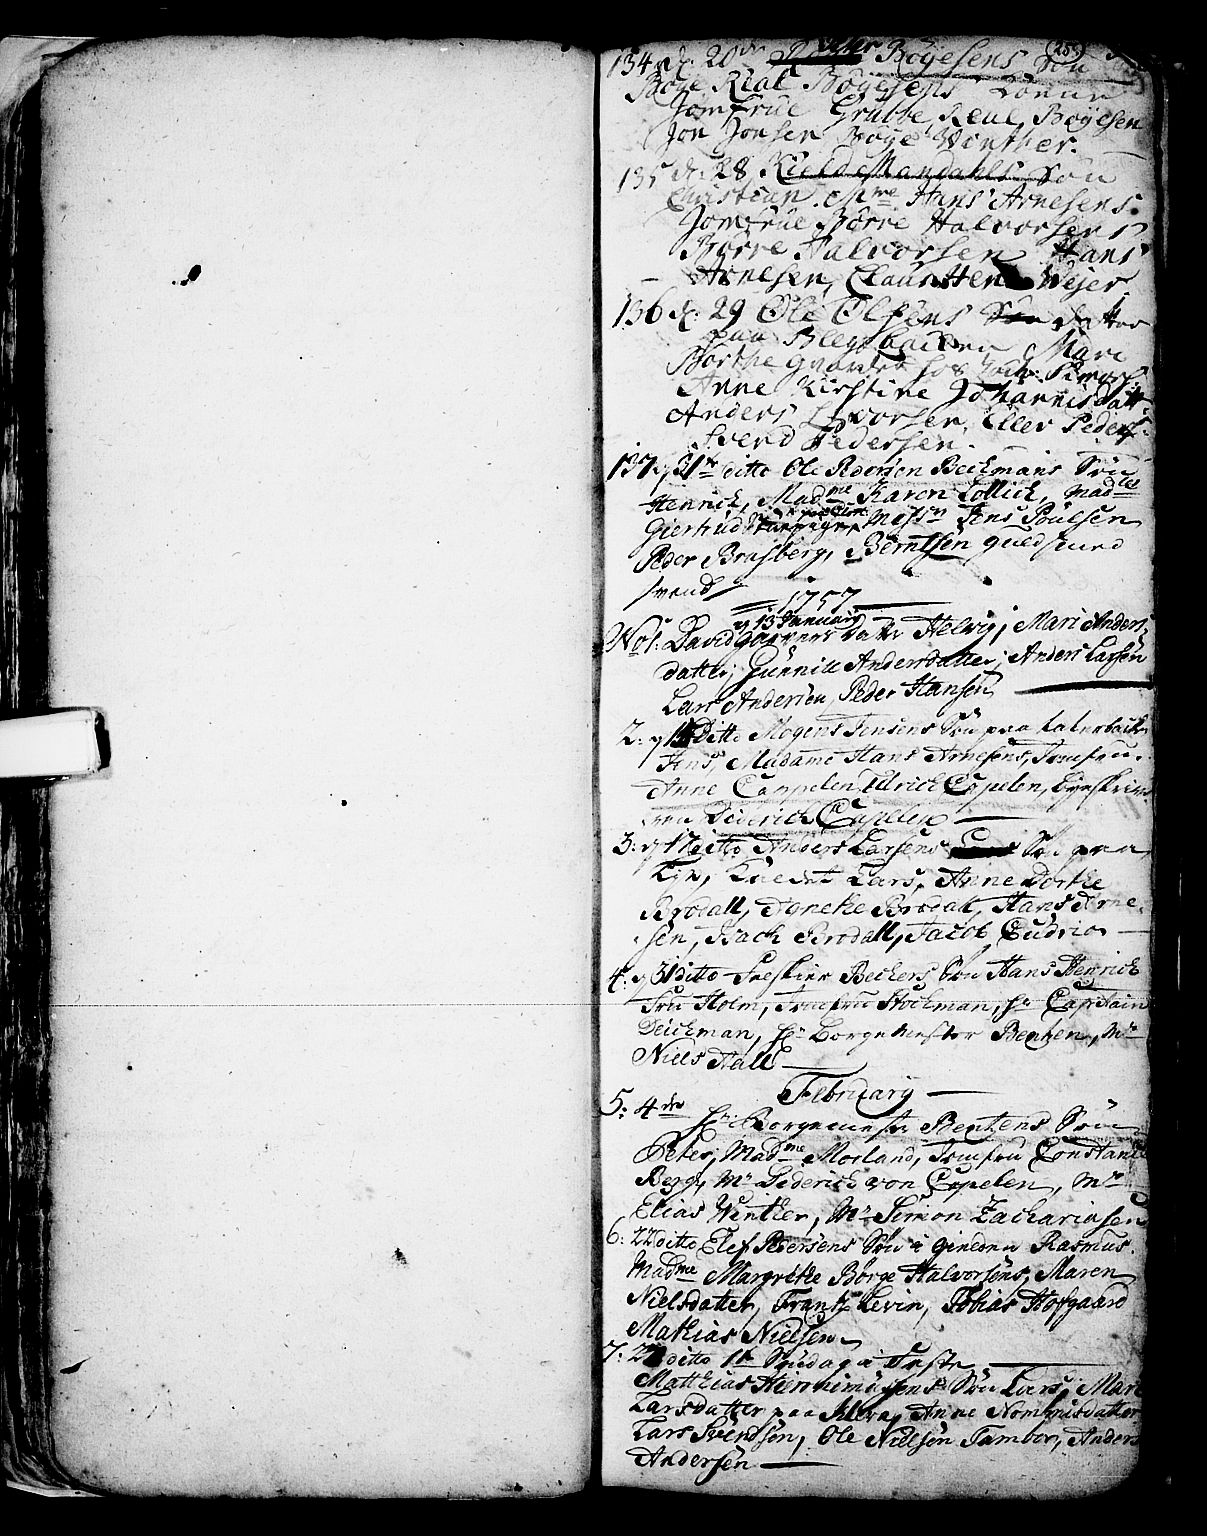 (253)
134 d: 20de Peder Böyesens Sön
Böye Rial Böyesens Konne
Jomfrue Grubbe, Reue Böyesen
Jon Jonsen Böye Winther.
135 d: 28 Kield Mandahls Sön
Christian. Mme Hans Arnesens
Jomfrue Börre Halvorsens
Börre Halvorsen Hans
Arnesen, Claus Weyer
136 d: 29 Ole Olsens datter
paa Blegebacken Mari
Borthe
Anne Kirstine Johannisdatt.
Anders Ivorsen, Eller Peders:
Svend Pedersen.
137 d 31te ditto Ole Pedersen Beckmans Sön
Henrich, Madme Karen Collick, Madlle
Giertrud Missr Jens Poulsen
Peder Brasberg, Berntsen guldsmed
svend
1757
d 13 Januarij
No 1: David datter Helvig, Mari Anders
datter, Gunnild Andersdatter, Anders Larsen
Lars Andersen, Peder Hansen
2: d ditto Mogens Jensens Sön paa
Jens, Madame Hans Arnesens, Jomfru
Anne Cappelen, Ulrich Capelen, byeskriver
von Diderich Capelen
3: d 17 ditto Anders Larsens Sön paa
Lars, Anne Dorthe
Brodall, Agnethe Brodall, Hans Arne-
sen, Isach Brodall, Jacob Cudrio
4: d 31 ditto Beckers Sön Hans Henrich
Fru Holm, Jomfru Stockman, Hr Capitain
Deichman, Hr Borgemester Bentzen, Mr
Niels Hall
February
5: 4de
Hr Borgemester Bentzens Sön
Peter, Madme Morland, Jomfru Constance
Berg, Mr Diderich von Capelen, Mr
Elias Winther, Mr Simon Zachariasen
6: 22 ditto Elef Pedersens Sön i Rasmus.
Madme Margrethe Börge Halvorsens, Maren
Nielsdatter, Frantz Levin, Tobias Hofgaard
Mathias Nielsen
7: ditto 1te Söndag i Faste
Matthias Hieronimusens Sön Lars, Mari
Larsdatter paa Kleva, Anne
Lars Svendsen, Ole Nielsen Tambor, Anders
Andersen